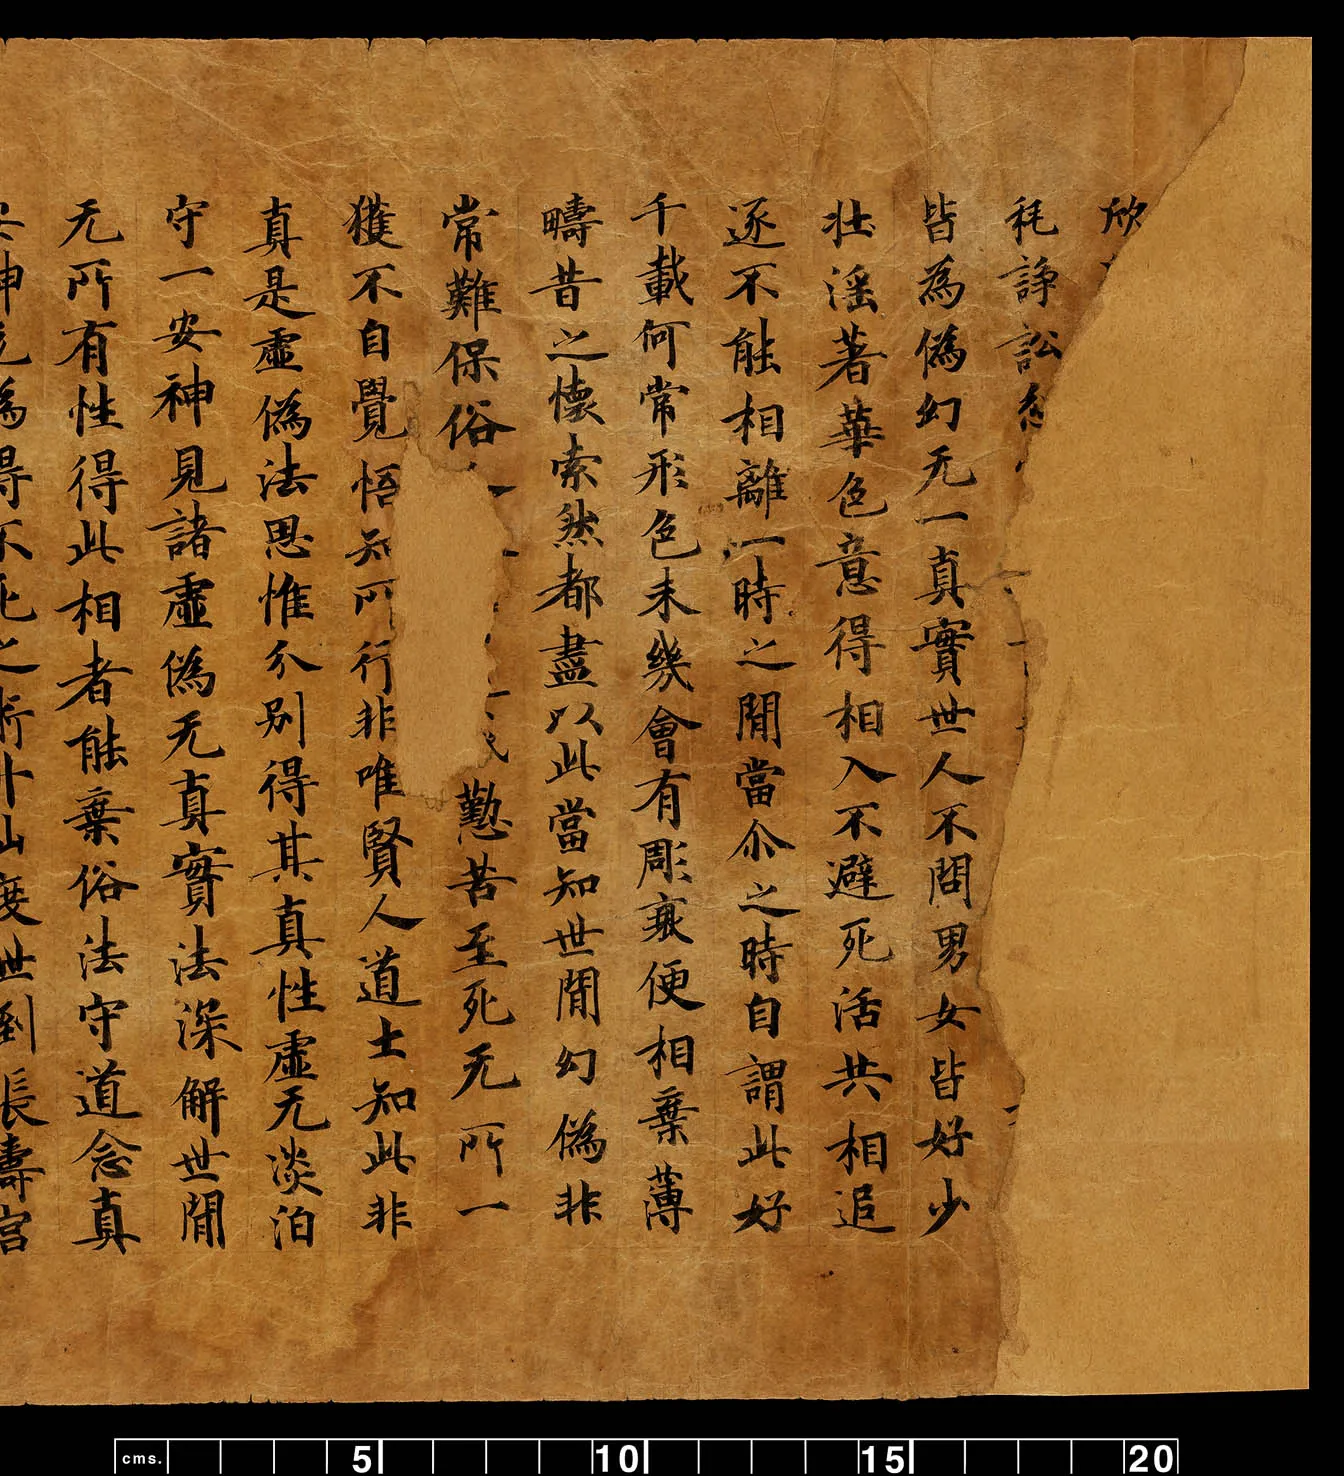 欣
秏諍訟
皆為偽幻无一真實世人不問男女皆好少
壮滛著華色意得相入不避死活共相追
逐不能相離一時之閒當尒之時自謂此好
千載何常形色未幾會有彫衰便相棄薄
疇昔之懷索然都盡以此當知世閒幻偽非
常難保俗勤苦至死无所一
獲不自覺悟知所行非唯賢人道士知此非
真是虛偽法思惟分别得其真性虛无淡泊
守一安神見諸虛偽无真實法深解世閒
无所有性得此相者能棄俗法守道念真
安神為得不死之術升仙度世到長壽宮